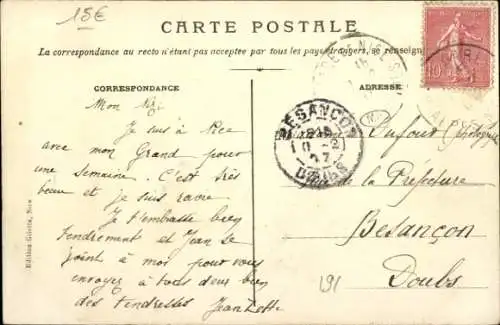 15€
CARTE POSTALE
La correspondance au recto n'étant pas acceptée par tous les pays étrangers, se renseign
CORRESPONDANCE
ADRESSE
Mon
Je suis à
avec mon Grand pour
une semaine. C'est très
beau et je suis ravie
Je t'embrasse bien
tendrement et Jean se
joint à moi pour vous
envoyer à tous deux bien
des tendresses Jeannette
Dufour
de la Préfecture
Besançon
Doubs
BESANÇON
DOUBS
10
191
Edition Giletta, Nice